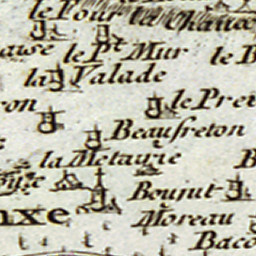 le Four la Chausse
le Pt Mur le B
la Valade
ron le Pre
Beaufreton
la Metairie B
Boujut
nxe Moreau
Baco